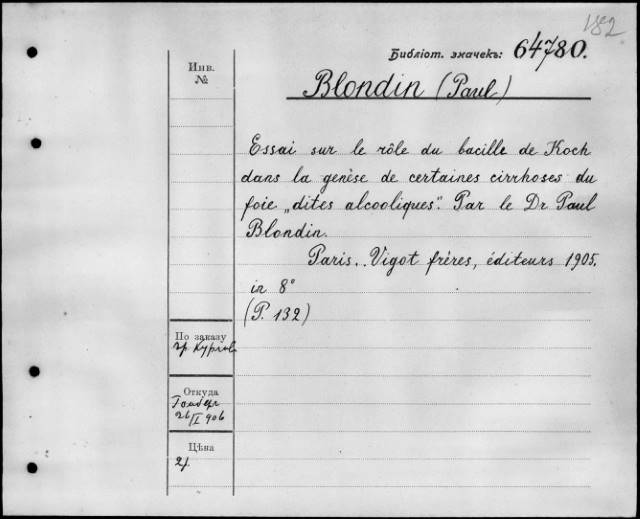 182
Библіот. значекъ: 64780.
Инв.
№
Blondin (Paul)
Essai sur le rôle du bacille de Koch
dans la genèse de certaines cirrhoses du
foie „dites alcooliques". Par le Dr Paul
Blondin.
Paris.. Vigot frères, éditeurs 1905.
in 8°
(P. 132)
По заказу
Откуда
26/I 906
Цѣна